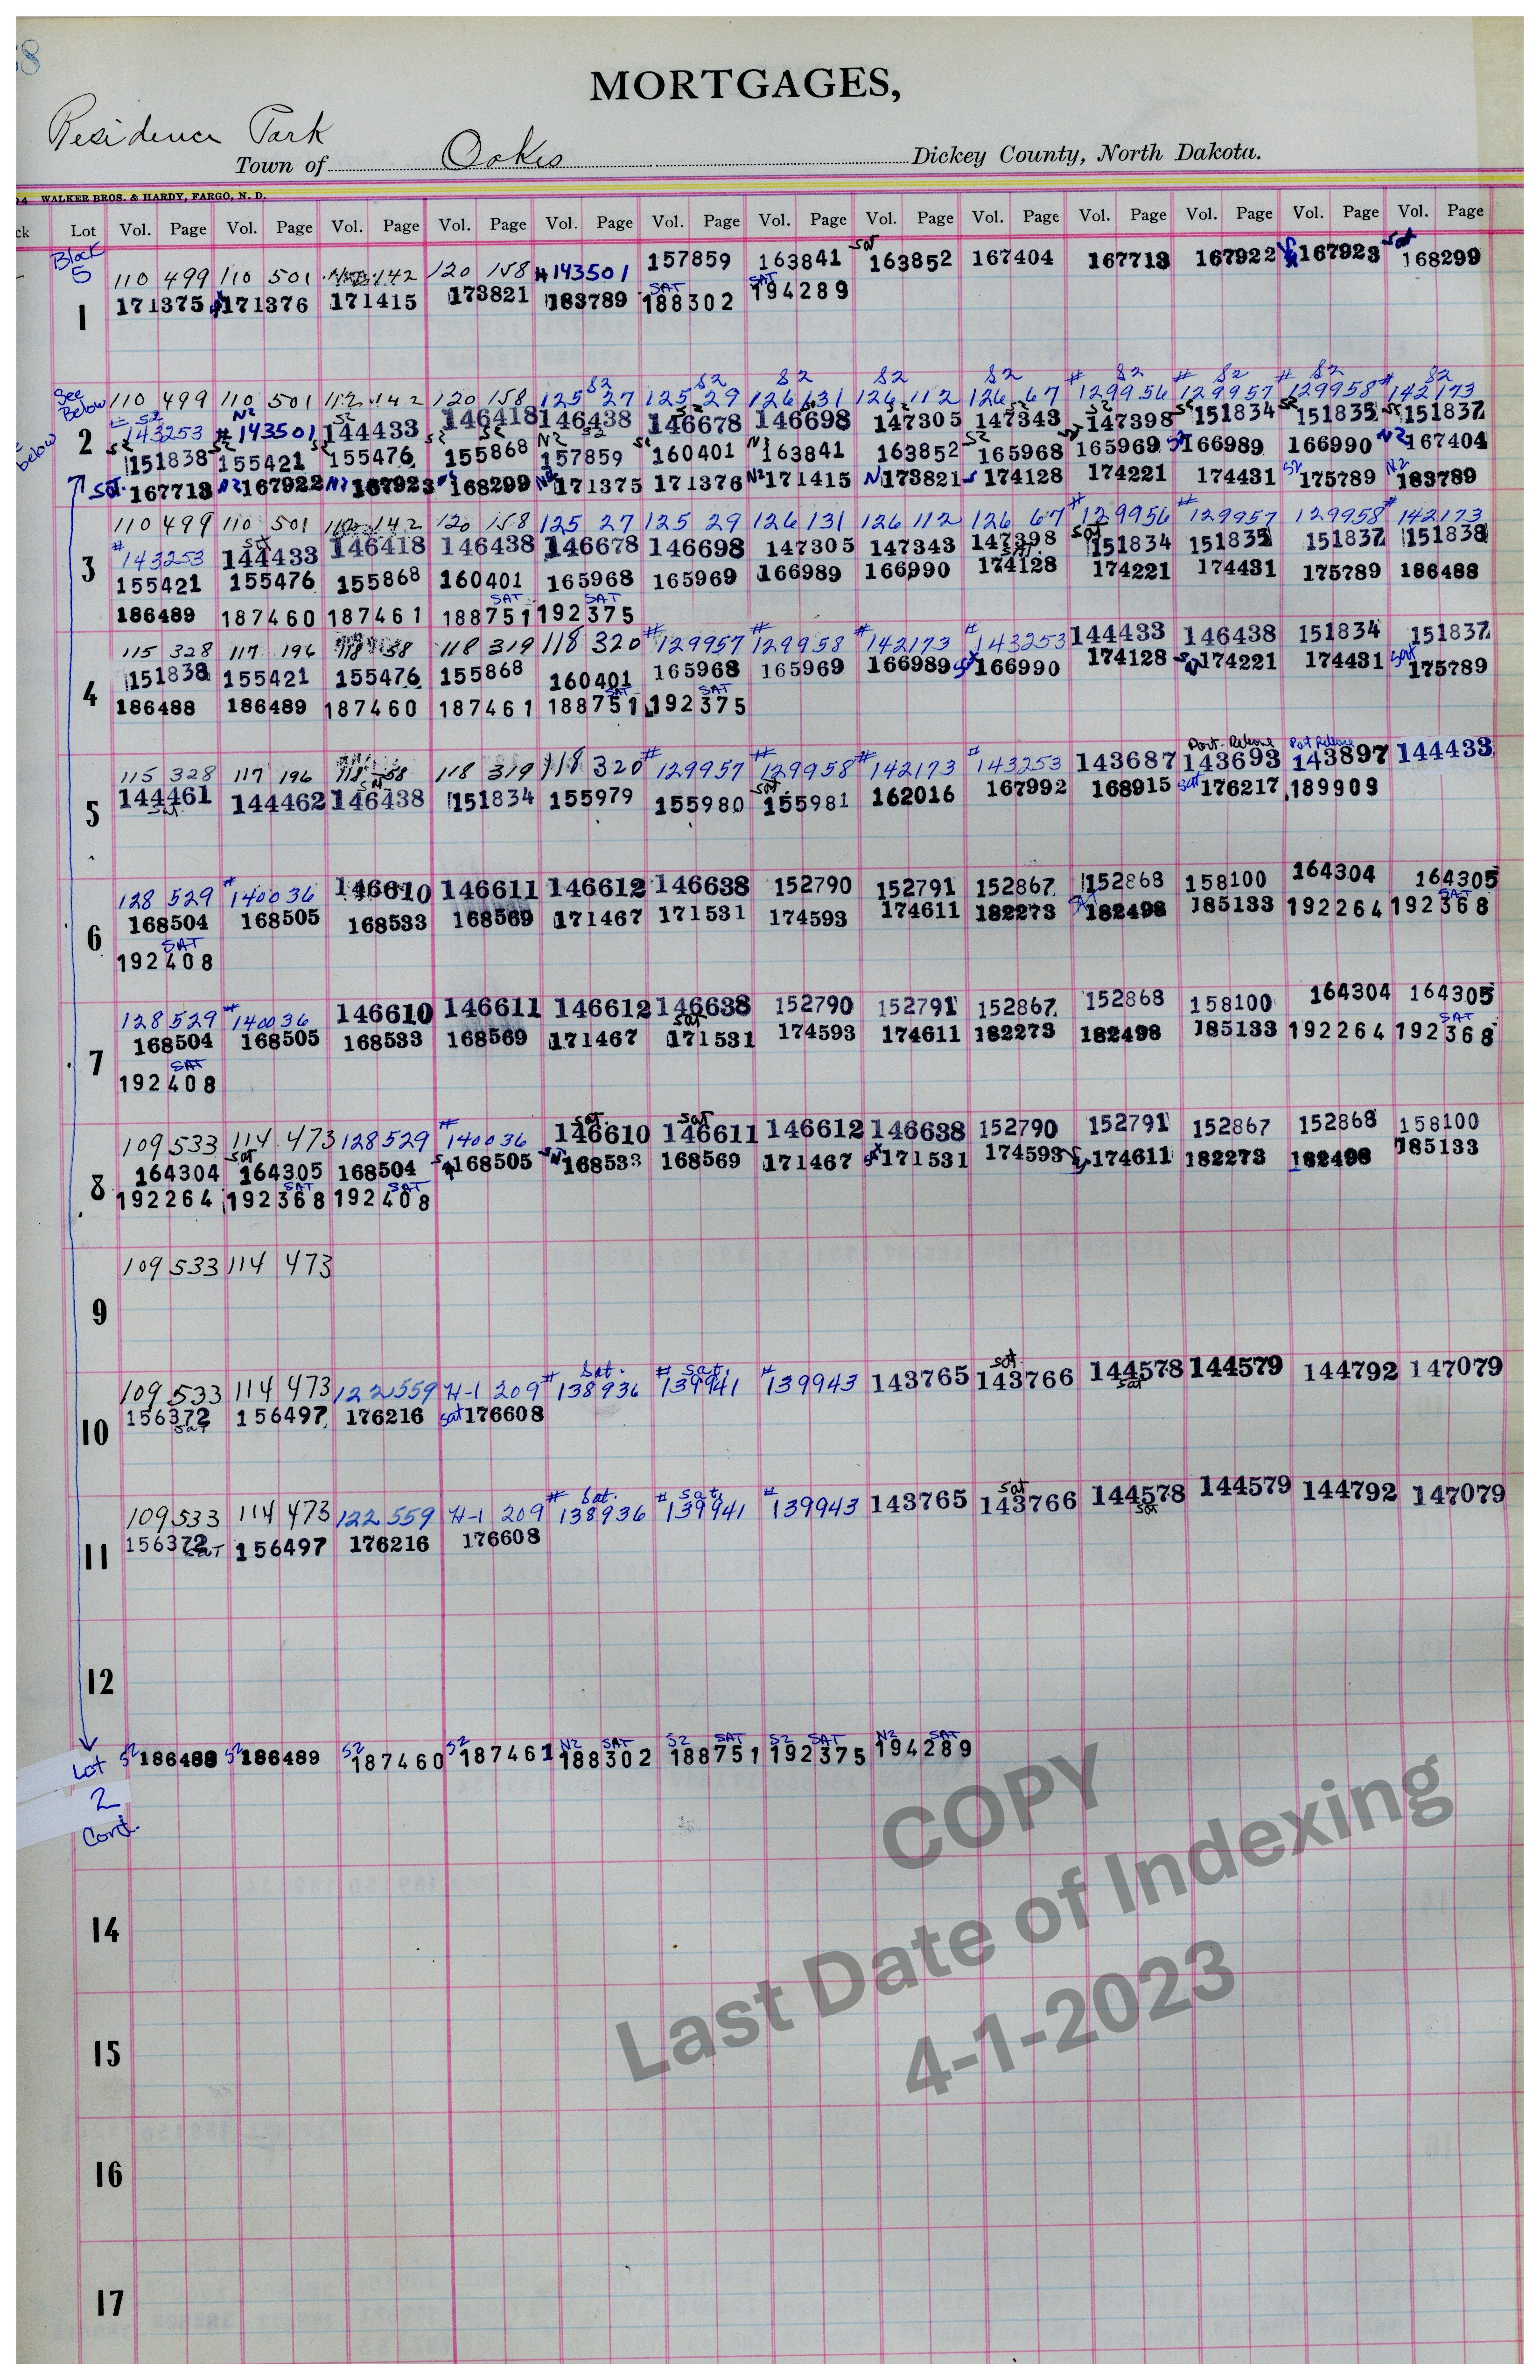 MORTGAGES,
Residence Park
Town of Oakes Dickey County, North Dakota.
WALKER BROS. & HARDY, FARGO, N. D.
Lot Vol. Page Vol. Page Vol. Page Vol. Page Vol. Page Vol. Page Vol. Page Vol. Page Vol. Page Vol. Page Vol. Page Vol. Page Vol. Page
Block 5
110 499 110 501 142 120 158 #143501 157859 163841 sat 163852 167404 167713 167922 167923 sat 168299
1 171375 171376 171415 173821 183789 SAT 188302 SAT 194289
See Below
110 499 110 501 112 142 120 158 S2 125 27 S2 125 29 S2 126 131 S2 126 112 S2 126 67 # S2 129956 # S2 129957 # S2 129958 # S2 142173
2 S2 143253 N2 #143501 S2 144433 146418 146438 146678 146698 147305 147343 147398 151834 151835 151837
below S2 151838 S2 155421 S2 155476 S2 155868 N2 157859 160401 163841 163852 S2 165968 165969 S2 166989 166990 N2 167404
Sat. 167713 N2 167922 N2 167923 168299 N2 171375 171376 N2 171415 N 173821 174128 174221 174431 S2 175789 N2 183789
110 499 110 501 112 142 120 158 125 27 125 29 126 131 126 112 126 67 #129956 #129957 129958 #142173
3 #143253 144433 146418 146438 146678 146698 147305 147343 147398 sat 151834 151835 151837 151838
155421 155476 155868 160401 165968 165969 166989 166990 174128 174221 174431 175789 186488
186489 187460 187461 SAT 188751 SAT 192375
115 328 117 196 118 58 118 319 118 320 #129957 #129958 #142173 #143253 144433 146438 151834 151837
4 151838 155421 155476 155868 160401 165968 165969 166989 166990 174128 174221 174431 sat 175789
186488 186489 187460 187461 SAT 188751 SAT 192375
115 328 117 196 118 58 118 319 118 320 #129957 #129958 #142173 #143253 143687 Part. Release 143693 Part Release 143897 144433
5 144461 sat. 144462 146438 151834 155979 155980 sat. 155981 162016 167992 168915 sat 176217 189909
128 529 #140036 146610 146611 146612 146638 152790 152791 152867 152868 158100 164304 164305
6 168504 168505 168533 168569 171467 171531 174593 174611 182273 SAT 182498 185133 192264 SAT 192368
SAT 192408
128 529 #140036 146610 146611 146612 146638 152790 152791 152867 152868 158100 164304 164305
7 168504 168505 168533 168569 171467 sat 171531 174593 174611 182273 182498 185133 192264 SAT 192368
SAT 192408
109 533 114 473 128 529 #140036 sat 146610 sat 146611 146612 146638 152790 152791 152867 152868 158100
8 164304 sat 164305 168504 168505 168533 168569 171467 171531 174593 174611 182273 182498 185133
192264 SAT 192368 SAT 192408
109 533 114 473
9
109 533 114 473 122 559 H-1 209 # Sat. 138936 # sat. 139941 #139943 143765 sat. 143766 144578 sat 144579 144792 147079
10 156372 sat 156497 176216 sat 176608
109 533 114 473 122 559 H-1 209 # Sat. 138936 # sat. 139941 #139943 143765 sat 143766 144578 sat 144579 144792 147079
11 156372 sat 156497 176216 176608
12
Lot 2 Cont. S2 186488 S2 186489 S2 187460 S2 187461 N2 SAT 188302 S2 SAT 188751 S2 SAT 192375 N2 SAT 194289
14
15
16
17
COPY
Last Date of Indexing
4-1-2023